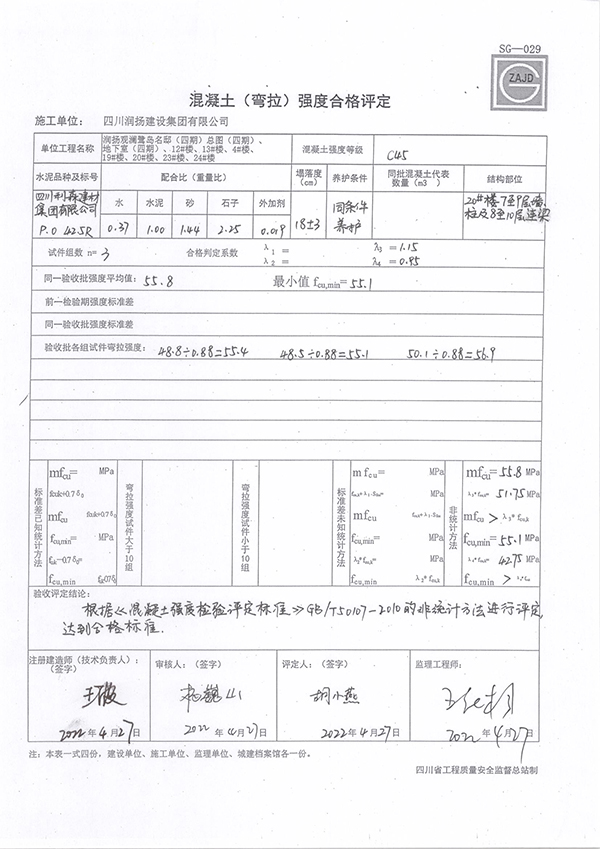 SG—029
ZAJD
混凝土（弯拉）强度合格评定
施工单位： 四川润扬建设集团有限公司
单位工程名称 润扬观澜鹭岛名邸（四期）总图（四期）、地下室（四期）、12#楼、13#楼、4#楼、19#楼、20#楼、23#楼、24#楼 混凝土强度等级 C45
水泥品种及标号 配合比（重量比） 塌落度（cm） 养护条件 同批混凝土代表数量（m3 ） 结构部位
四川利森建材集团有限公司 P.O 42.5R 水 水泥 砂 石子 外加剂 18±3 同条件养护 20#楼7至9层墙、柱及8至10层连梁
0.37 1.00 1.44 2.25 0.019
试件组数 n= 3 合格判定系数 λ1 = λ3 = 1.15
λ2 = λ4 = 0.95
同一验收批强度平均值： 55.8 最小值 fcu,min= 55.1
前一检验期强度标准差
同一验收批强度标准差
验收批各组试件弯拉强度： 48.8÷0.88=55.4 48.5÷0.88=55.1 50.1÷0.88=56.9
标准差已知统计方法 弯拉强度试件大于10组 弯拉强度试件小于10组 标准差未知统计方法 非统计方法
mfcu= MPa m fcu= MPa mfcu= 55.8 MPa
fcuk+0.7δ0 MPa 51.75 MPa
mfcu fcuk+0.7δ0 mfcu mfcu > λ3*fcu,k
fcu,min= fcu,min= MPa fcu,min= 55.1 MPa
fcuk-0.7δ0 MPa 42.75 MPa
fcu,min fcu,min fcu,min >
验收评定结论：
根据≪混凝土强度检验评定标准≫GB/T50107-2010的非统计方法进行评定，
达到合格标准.
注册建造师（技术负责人）：（签字） 审核人：（签字） 评定人：（签字） 监理工程师：
胡小燕
2022年4月27日 2022年4月27日 2022年4月27日 2022年4月27日
注：本表一式四份，建设单位、施工单位、监理单位、城建档案馆各一份。
四川省工程质量安全监督总站制